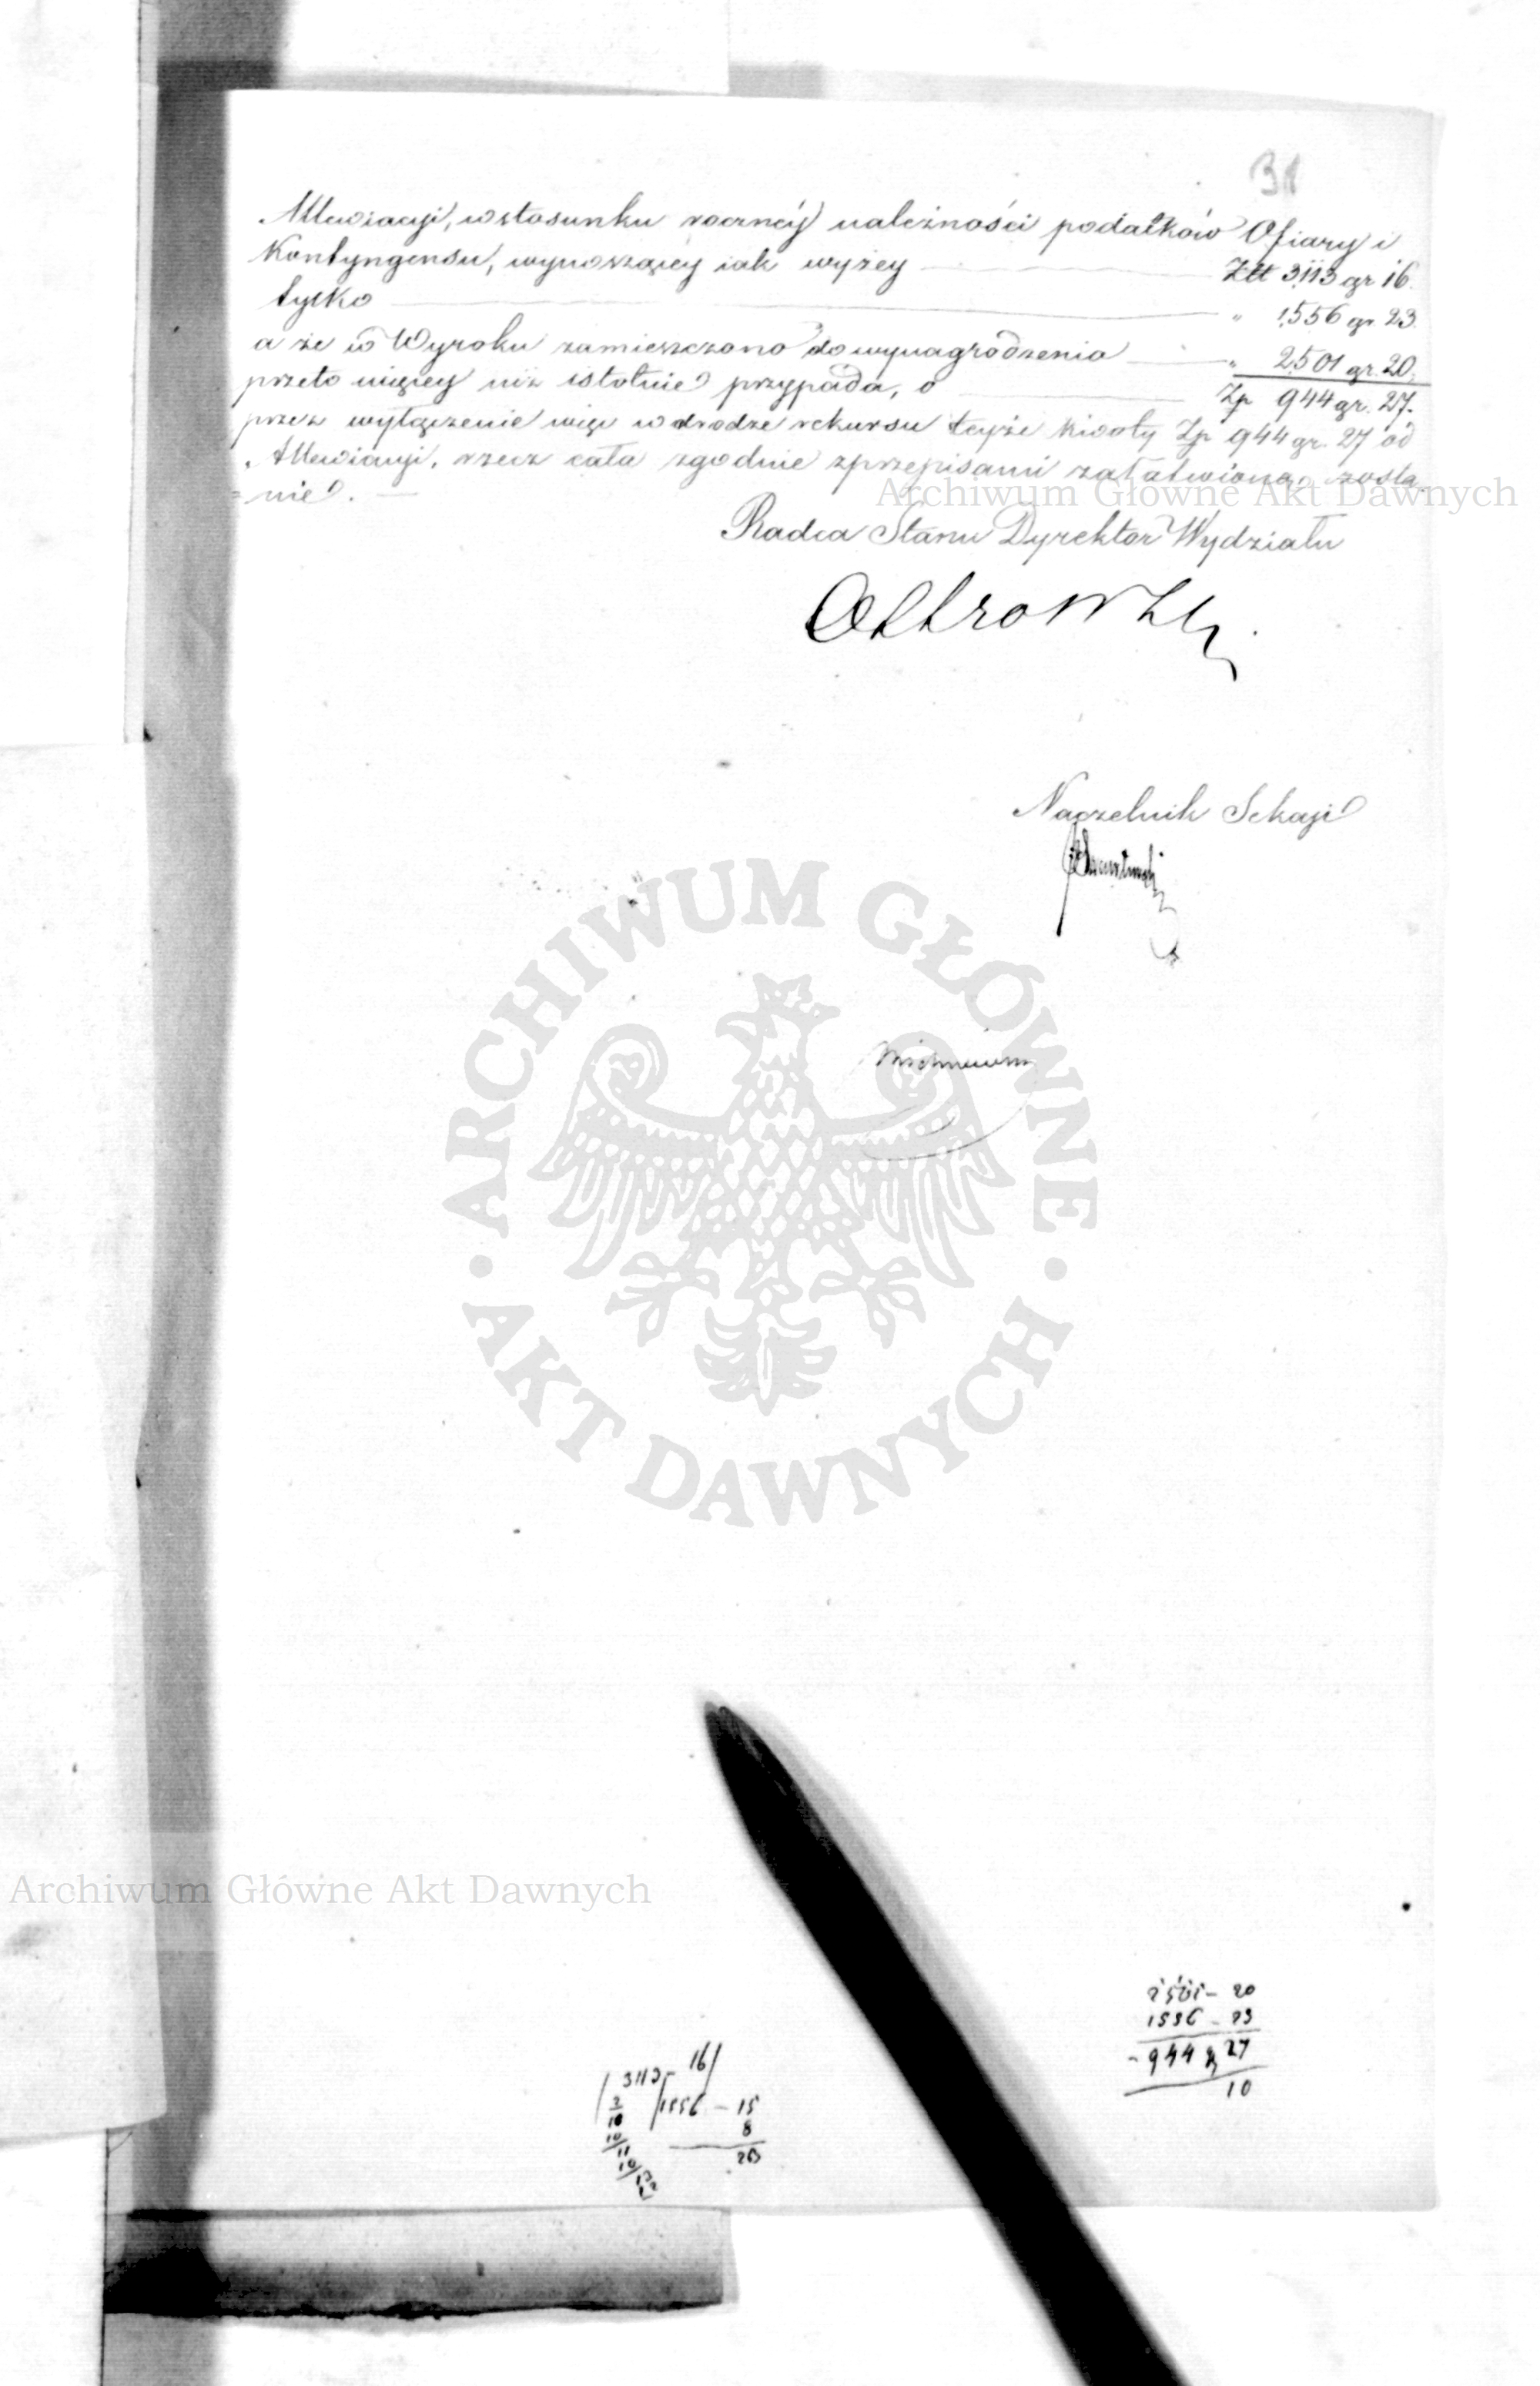 31
Allewiacyi, w stosunku roczney należności podatków Ofiary i
Kontyngensu, wynoszącey iak wyżey — Złt 3,113 gr 16.
tylko — " 1,556 gr. 23.
a że w Wyroku zamieszczono do wynagrodzenia — " 2,501 gr. 20,
przeto więcey niż istotnie przypada, o — Zp 944 gr. 27.
przez wyłączenie więc w drodze rekursu teyże kwoty Zp 944 gr. 27 od
Allewiacyi, rzecz cała zgodnie z przepisami załatwioną zosta
=nie. —
Archiwum Główne Akt Dawnych
Radca Stanu Dyrektor Wydziału
Naczelnik Sekcyi
ARCHIWUM GŁÓWNE
AKT DAWNYCH
Archiwum Główne Akt Dawnych
2501 – 20
1556 – 23
– 944 27
10
3113 – 16
1556 – 15
8
23